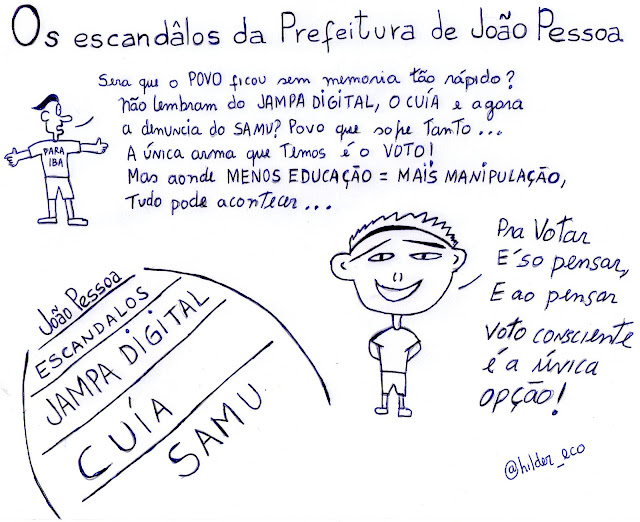 Os escandâlos da Prefeitura de João Pessoa
Sera que o POVO ficou sem memoria tão rápido?
Não lembram do JAMPA DIGITAL, O CUÍA e agora
a denuncia do SAMU? Povo que sofre tanto...
A única arma que temos é o VOTO!
Mas aonde MENOS EDUCAÇÃO = MAIS MANIPULAÇÃO,
Tudo pode acontecer...
PARA
IBA
Pra Votar
E' so pensar,
E ao pensar
Voto consciente
é a única
opção!
João Pessoa
ESCANDALOS
JAMPA DIGITAL
CUÍA
SAMU
@hilder_eco